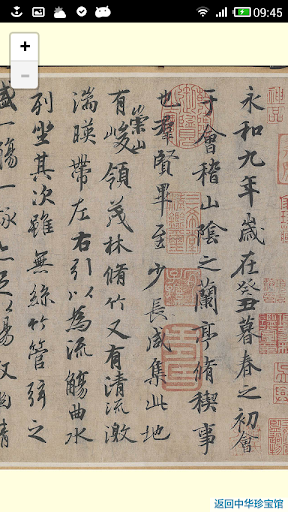 09:45
+
−
永和九年歲在癸丑暮春之初會
于會稽山陰之蘭亭脩稧事
也羣賢畢至少長咸集此地
有崇山峻領茂林脩竹又有清流激
湍暎帶左右引以為流觴曲水
列坐其次雖無絲竹管弦之
盛一觴一詠
返回中华珍宝馆